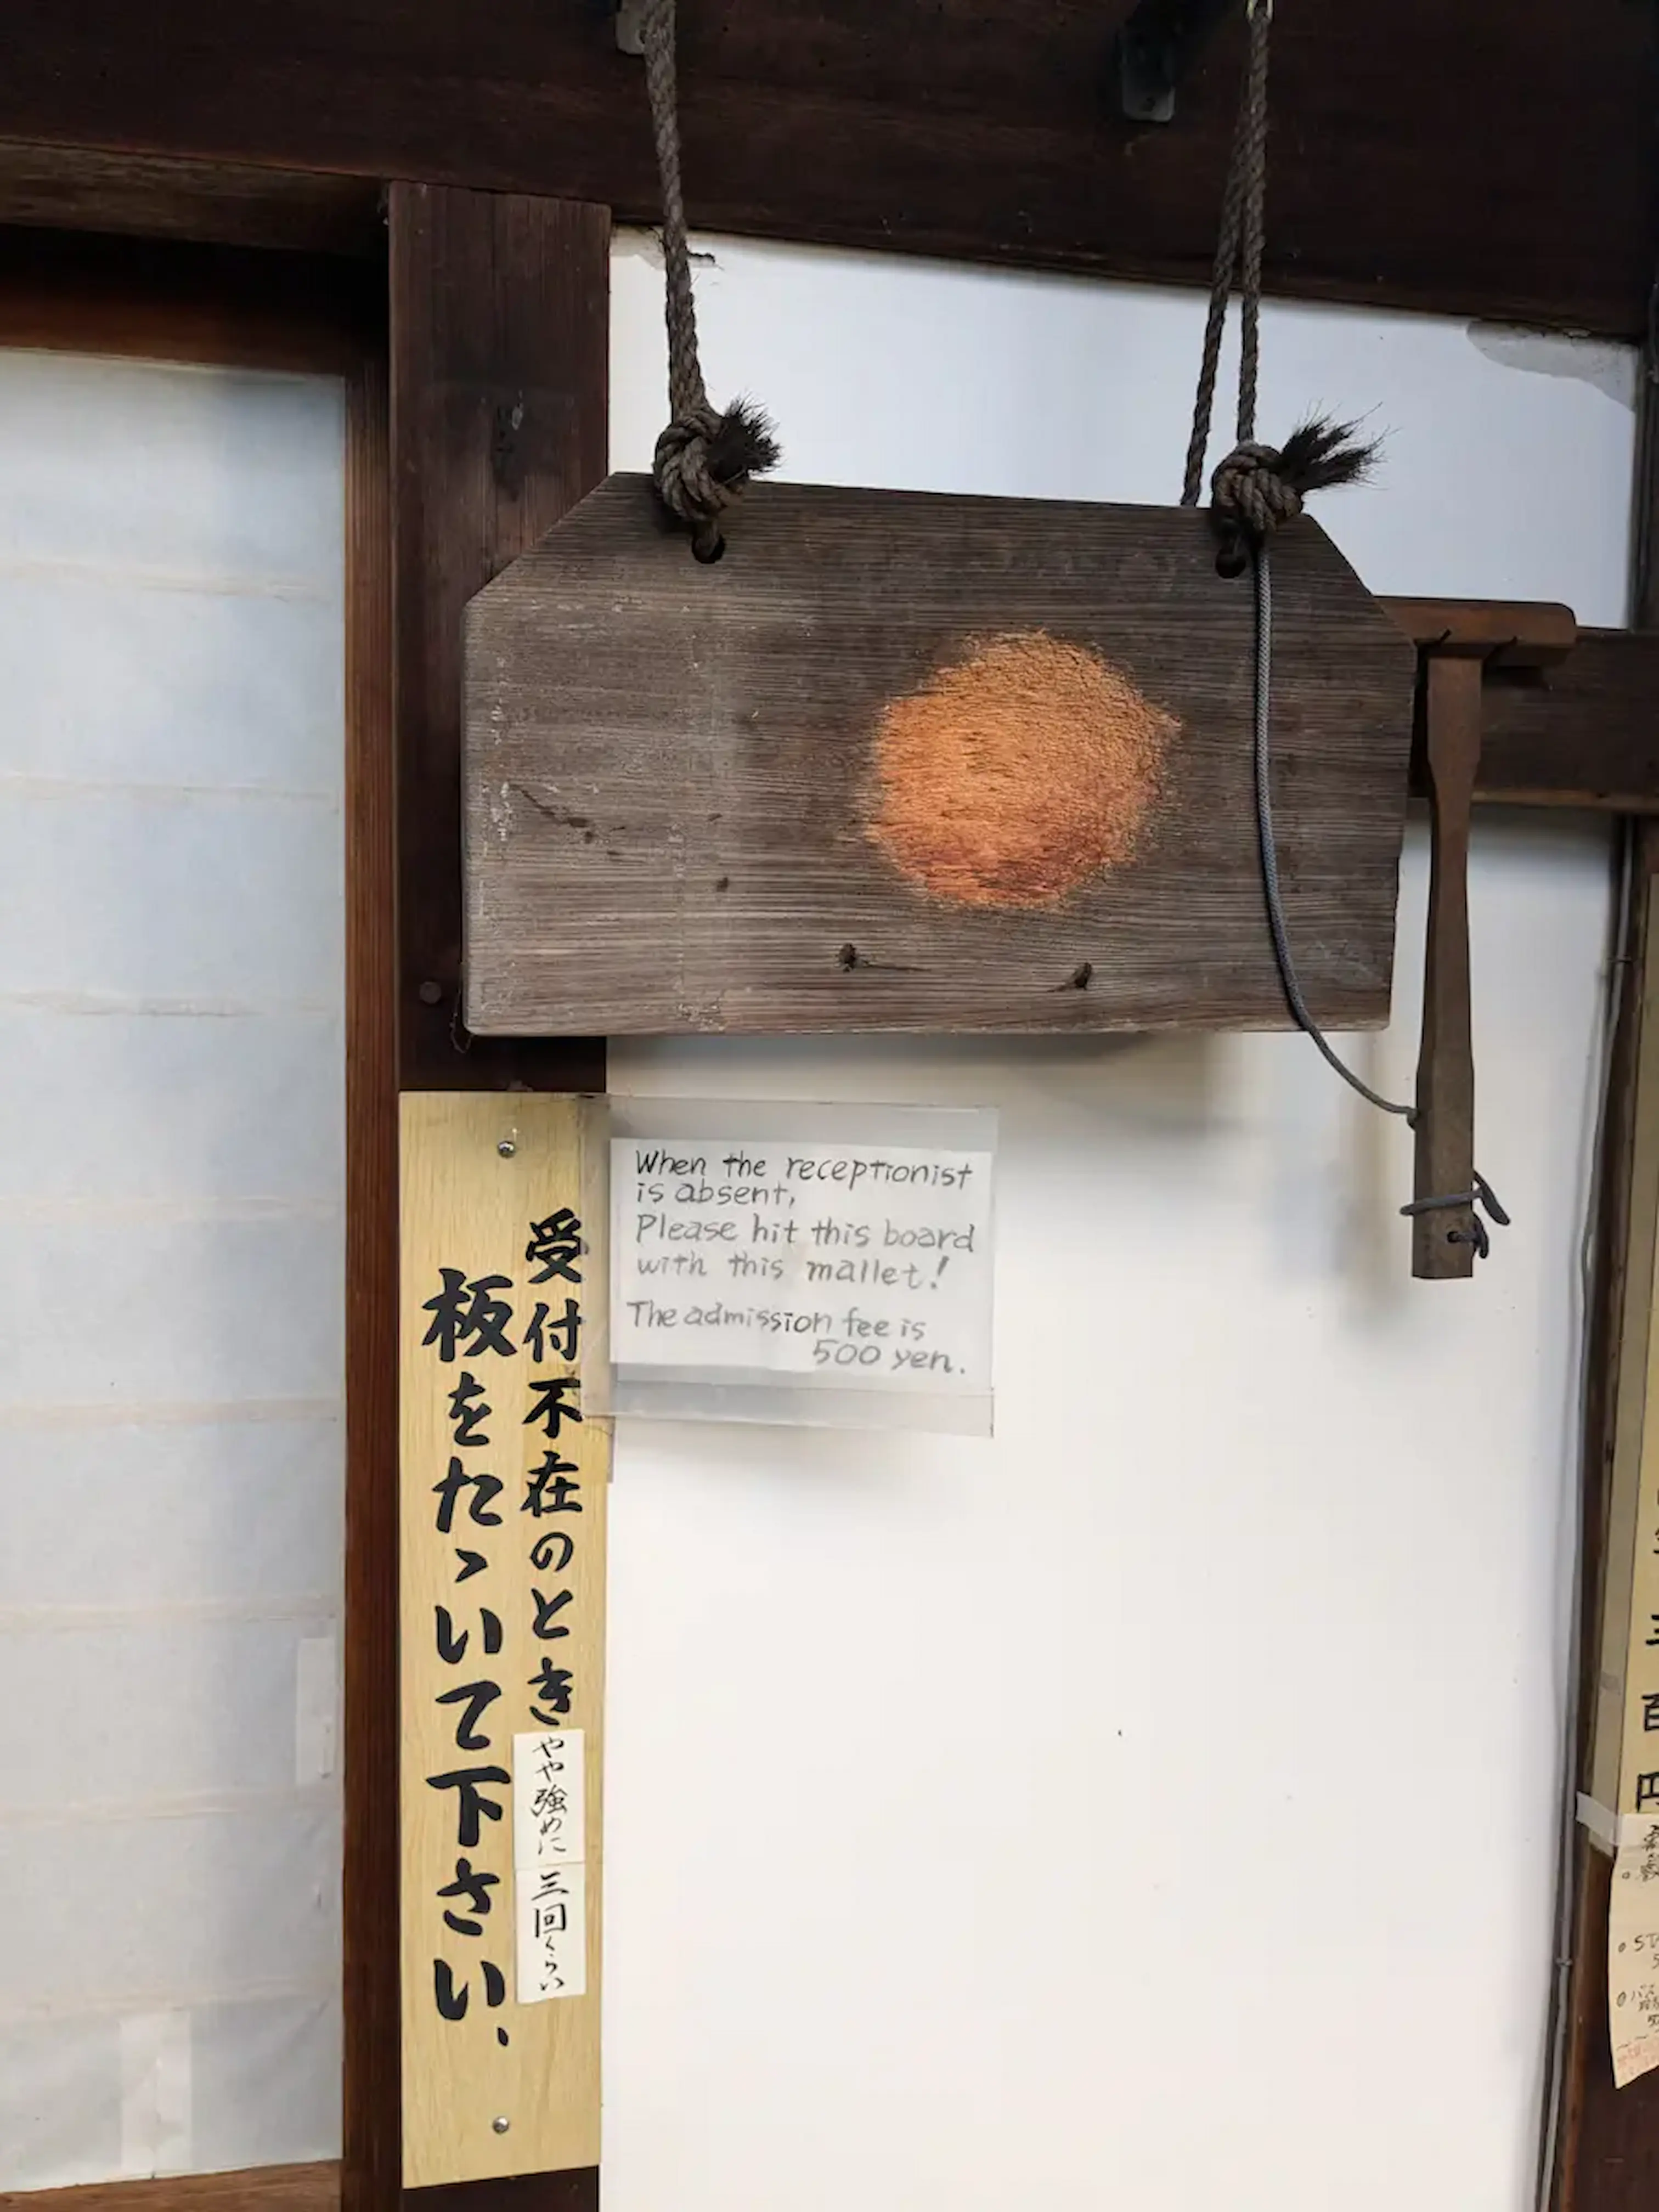 受付不在のとき
やや強めに
三回くらい
板をたゝいて下さい、
When the receptionist
is absent,
Please hit this board
with this mallet!
The admission fee is
500 yen.
百
円